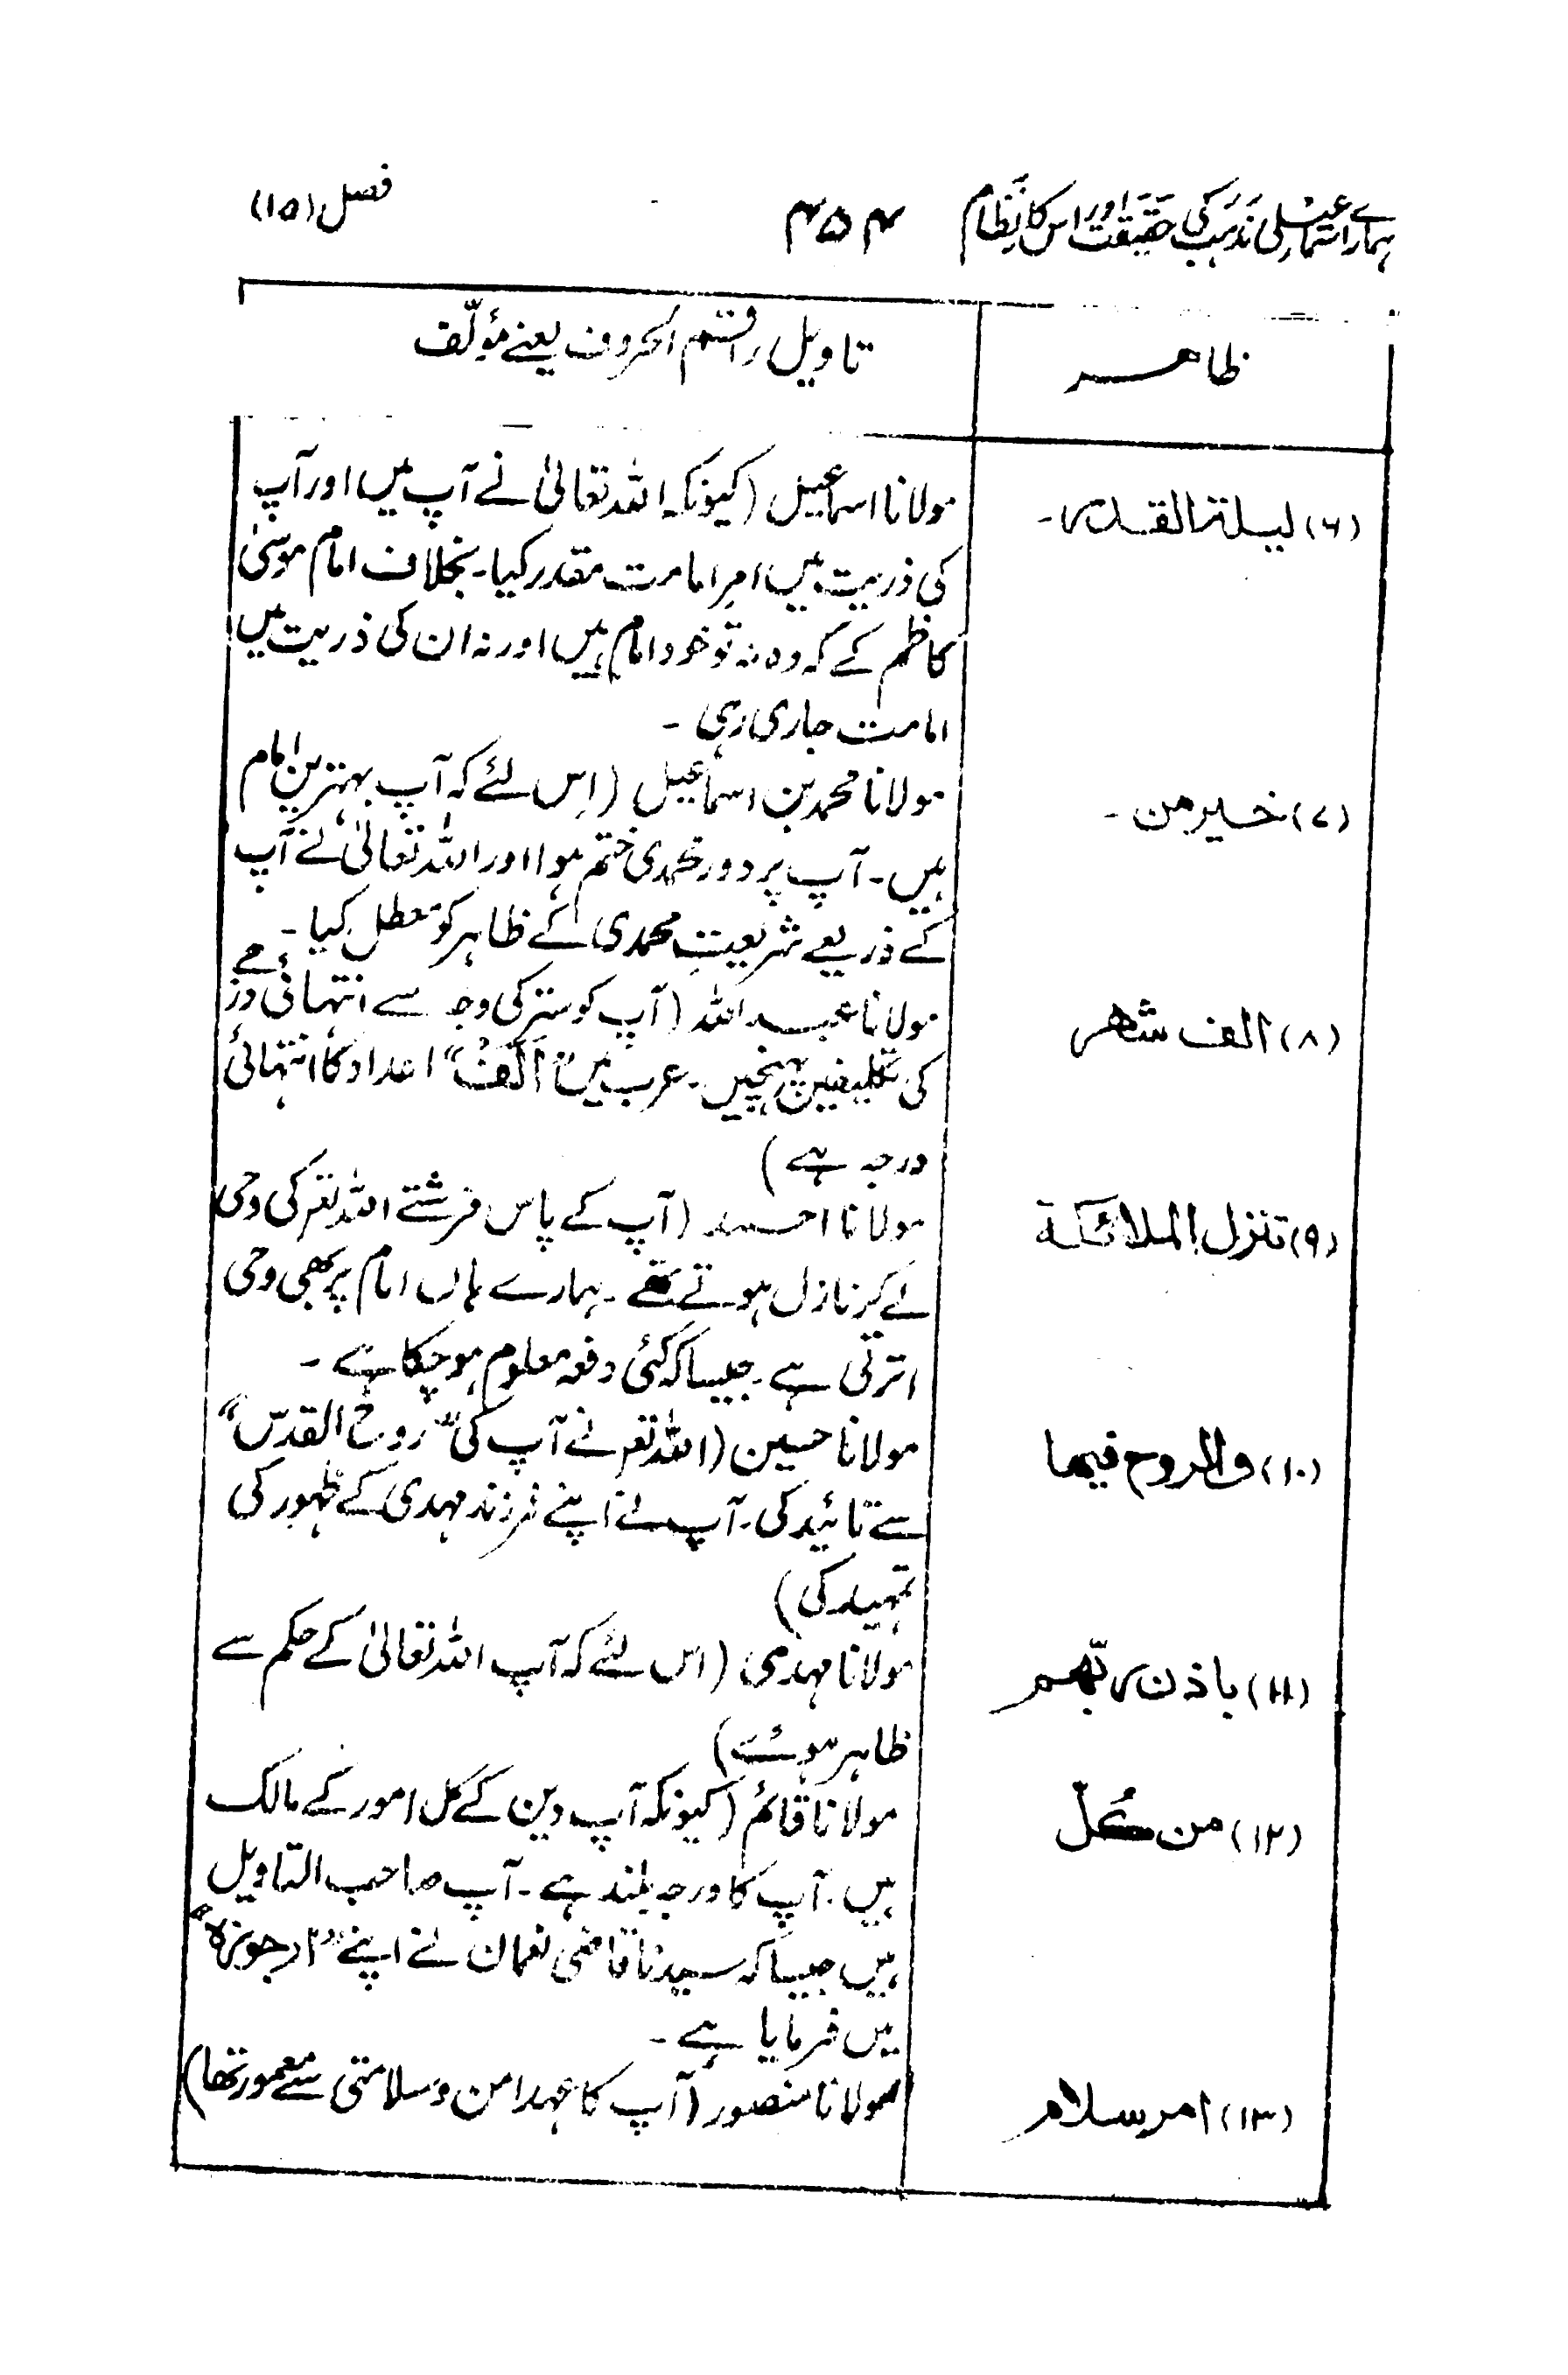 ہمارے اسماعیلی مذہب کی حقیقت اور اس کا نظام ۴۵۴ فصل (۱۵)
ظاھر
تاویل راقم الحروف یعنے مؤلّف
(۶) لیلۃ القدر۔
مولانا اسماعیل (کیونکہ اللہ تعالیٰ نے آپ میں اور آپ
کی ذریت میں امرِ امامت مقدر کیا۔ بخلاف امام موسیٰ
کاظم کے کہ وہ نہ تو خود امام ہیں اور نہ ان کی ذریت میں
امامت جاری رہی ۔
(۷) خیر من ۔
مولانا محمد بن اسماعیل (اِس لئے کہ آپ بہترین امام
ہیں۔ آپ پر دور محمدی ختم ہوا اور اللہ تعالیٰ نے آپ
کے ذریعے شریعتِ محمدی کے ظاہر کو معطل کیا ۔
(۸) الف شھر
مولانا عبد اللہ (آپ کو ستر کی وجہ سے انتہائی درجے
کی تکلیفیں پہنچیں ۔ عرب میں "اَلْفْ" اعداد کا انتہائی
درجہ ہے)
(۹) تنزل الملائکۃ
مولانا احمد (آپ کے پاس فرشتے اللہ تعہ کی وحی
لے کر نازل ہوتے تھے ۔ ہمارے ہاں امام پر بھی وحی
اترتی ہے ۔ جیسا کہ کئی دفعہ معلوم ہو چکا ہے ۔
(۱۰) والروح فیھا
مولانا حسین (اللہ تعہ نے آپ کی "روح القدس"
سے تائید کی۔ آپ نے اپنے فرزند مہدی کے ظہور کی
تمہید کی)
(۱۱) باذن ربّھم
مولانا مہدی (اس لئے کہ آپ اللہ تعالیٰ کے حکم سے
ظاہر ہوئے)
(۱۲) من کُلّ
مولانا قائم (کیونکہ آپ دین کے کل امور کے مالک
ہیں۔ آپ کا درجہ بلند ہے ۔ آپ صاحب التاویل
ہیں جیسا کہ سیدنا قاضی نعمان نے اپنے "ارجوزہ"
میں فرمایا ہے ۔
(۱۳) امر سلام
مولانا منصور (آپ کا عہد امن و سلامتی سے معمور تھا)